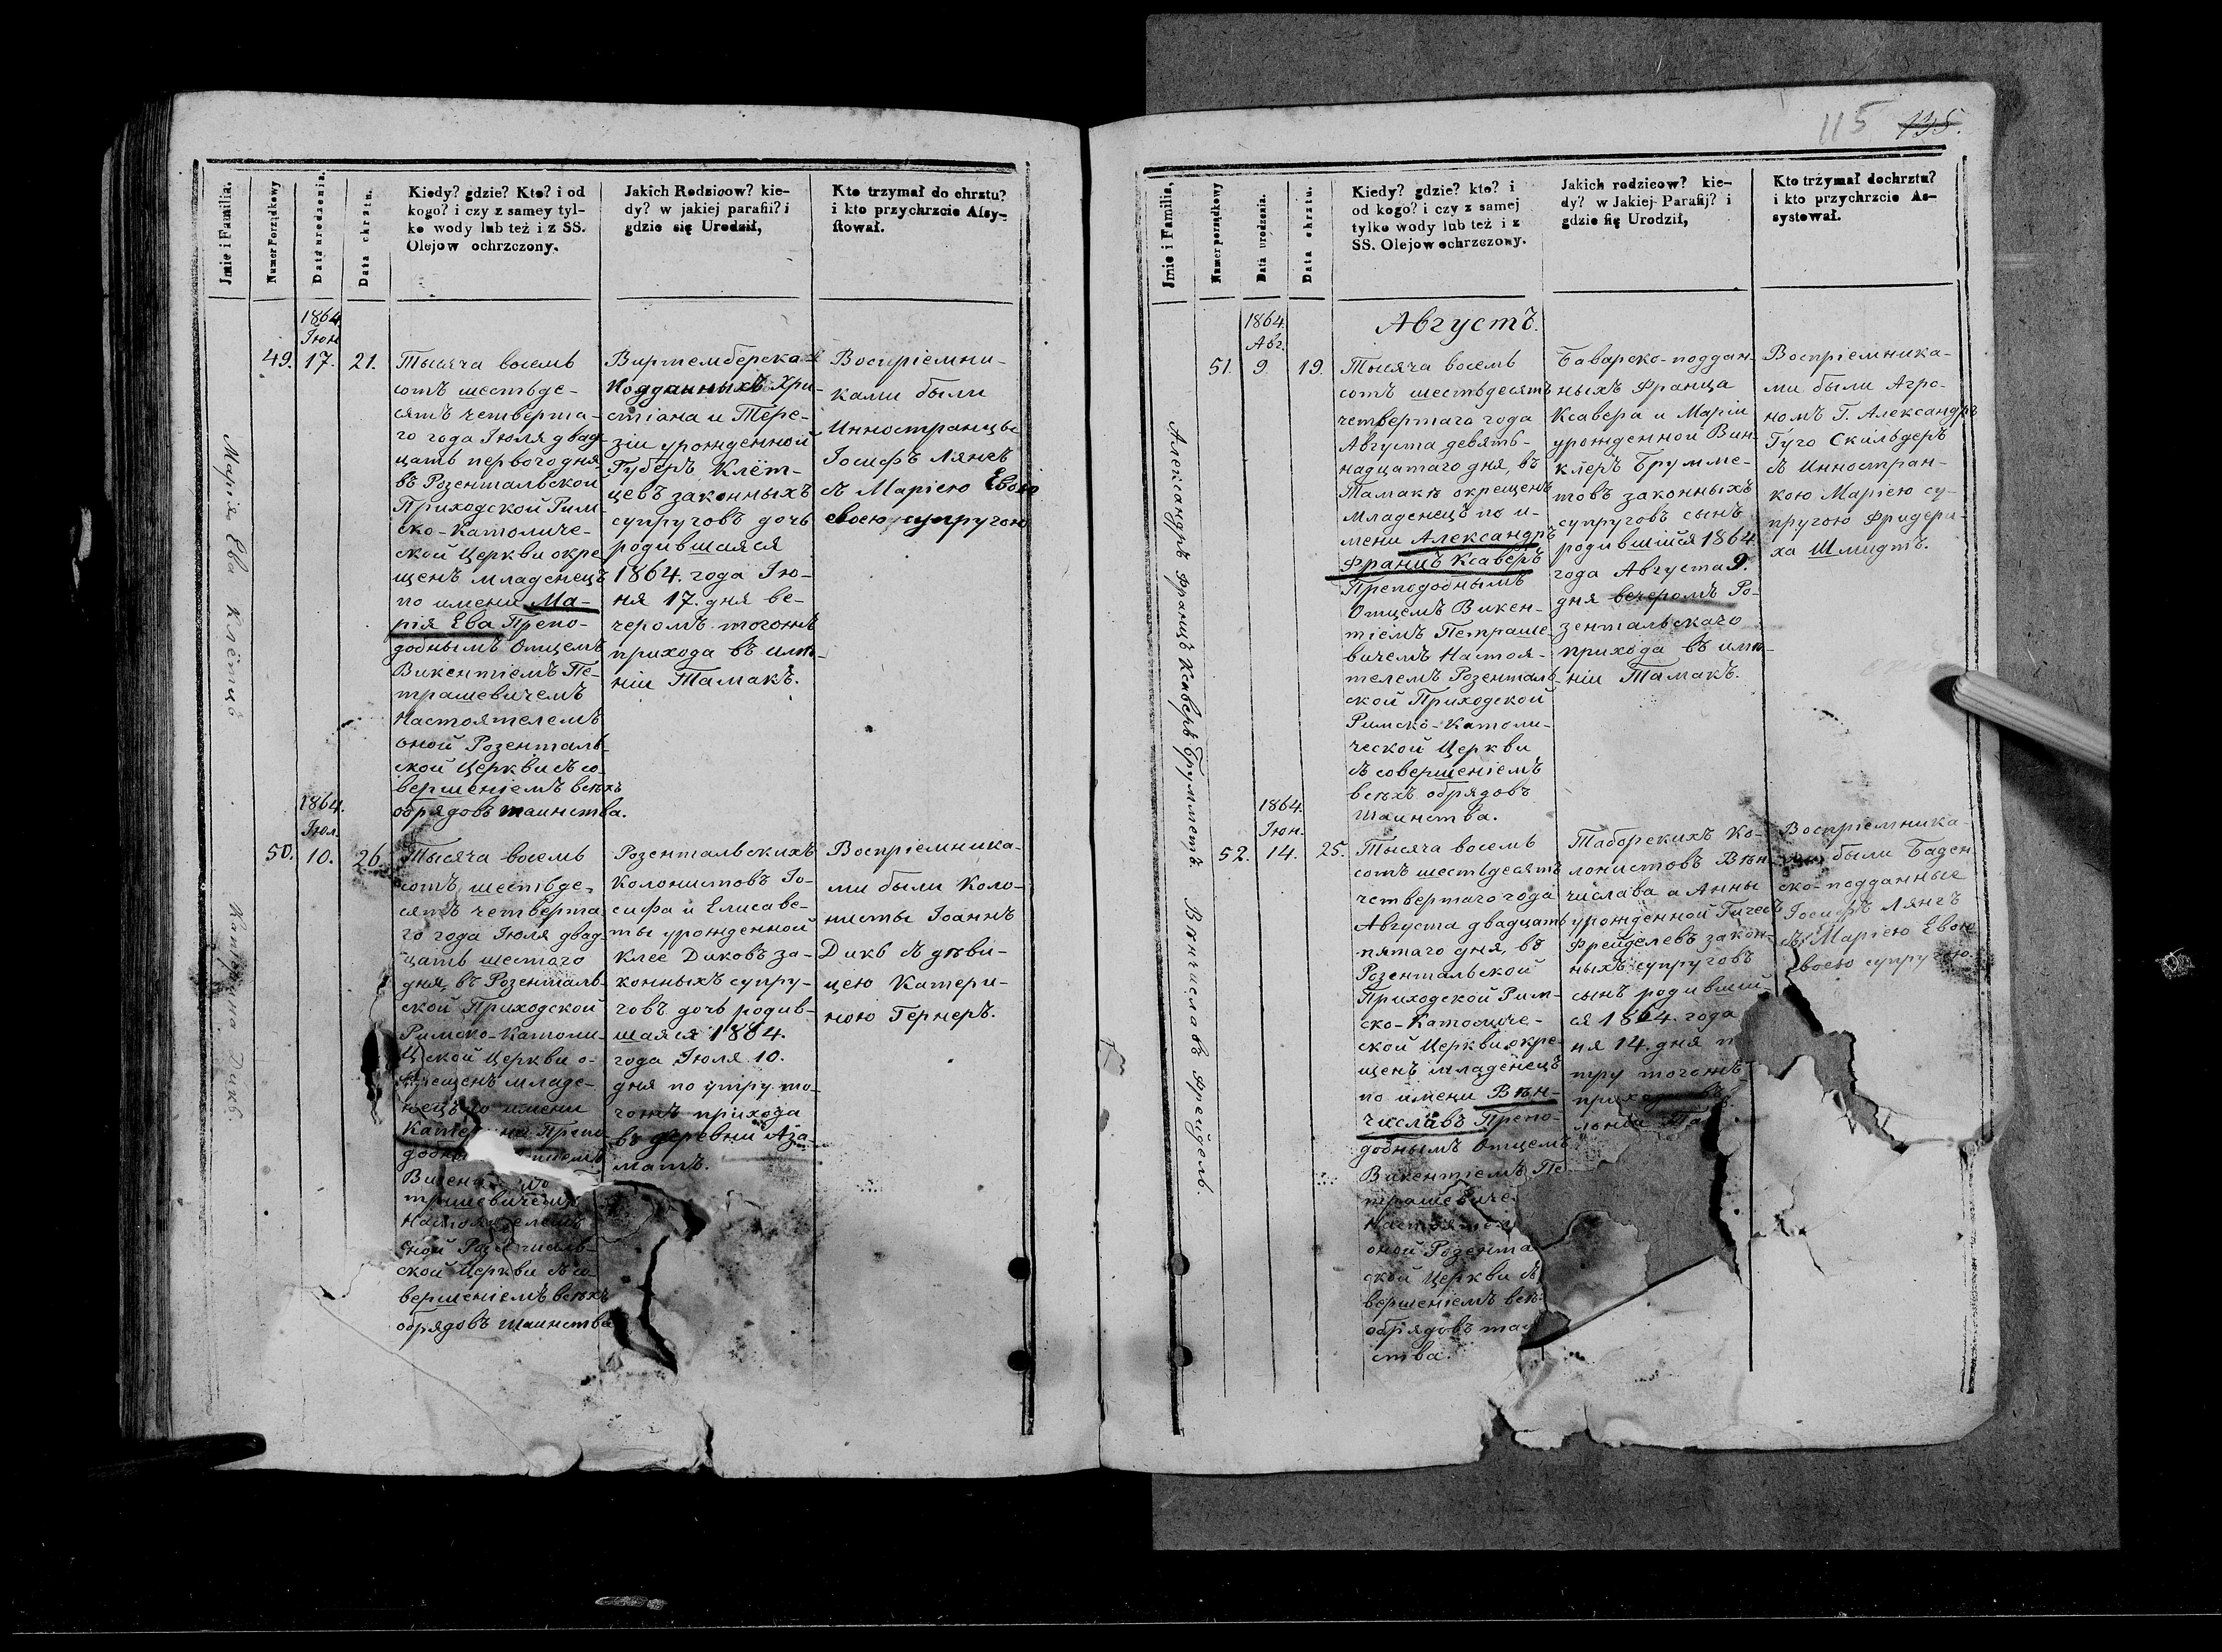 115 135.
Jmie i Familia.
Numer Porządkowy
Data urodzenia.
Data chrztu.
Kiedy? gdzie? Kto? i od
kogo? i czy z samey tyl-
ko wody lub też i z SS.
Olejow ochrzczony.
Jakich Rodzicow? kie-
dy? w jakiej parafii? i
gdzie się Urodził,
Kto trzymał do chrztu?
i kto przychrzcie Assy-
stował.
1864
Іюн
49. 17. 21.
Марія Ева Клётцъ
Тысяча восемь
сотъ шестьде-
сятъ четверта-
го года Іюля двад-
цать первого дня
въ Розентальской
Приходской Рим-
ско-Католиче-
ской Церкви окре
щенъ младенецъ
по имени Ма-
рія Ева Препо-
добнымъ Отцемъ
Викентіемъ Пе-
трашевичемъ
Настоятелемъ
оной Розенталь-
ской Церкви съ со-
вершеніемъ всѣхъ
обрядовъ таинства.
Виртемберска-
Подданныхъ Хри-
стіана и Тере-
зіи урожденной
Губенъ Клёт-
цевъ законныхъ
супруговъ дочь
родившаяся
1864. года Ію-
ня 17. дня ве-
черомъ тогожъ
прихода въ имѣ-
ніи Тамакъ.
Воспріемни-
ками были
Инностранцы
Іосифъ Лянгъ
съ Маріею Евою
своею супругою
1864.
Іюл.
50. 10. 26
Катерина Дикъ.
Тысяча восемь
сотъ шестьде-
сятъ четверта
го года Іюля двад-
цать шестого
дня, въ Розенталь-
ской Приходской
Римско-Католи-
ческой Церкви о-
крещенъ младе-
нецъ по имени
Катерина Препо
Викен
трашевичемъ
Настоятелемъ
оной Розенталь-
ской Церкви съ со-
вершеніемъ всѣхъ
обрядовъ таинства
Розентальскихъ
Колонистовъ Іо-
сифа и Елисаве-
ты урожденной
Клее Диковъ за-
конныхъ супру-
говъ дочь родив-
шаяся 1864.
года Іюля 10.
дня по утру то-
гожъ прихода
въ деревни Аза-
матъ.
Воспріемника-
ми были Коло-
нисты Іоаннъ
Дикъ съ дѣви-
цею Катери-
ною Гернеръ.
Jmie i Familia.
Numer porządkowy
Data urodzenia.
Data chrztu.
Kiedy? gdzie? kto? i
od kogo? i czy z samej
tylko wody lub też i z
SS. Olejow ochrzczony.
Jakich rodzicow? kie-
dy? w Jakiej Parafij? i
gdzie się Urodził,
Kto trzymał dochrztu?
i kto przychrzcie As-
systował.
1864.
Авг.
Августъ.
51. 9. 19.
Александръ Францъ Ксаверъ Брумметъ
Тысяча восемь
сотъ шестьдесятъ
четвертаго года
Августа девять-
надцатаго дня, въ
Тамакѣ окрещенъ
младенецъ по и-
мени Александръ
Францъ Ксаверъ
Преподобнымъ
Отцемъ Викен-
тіемъ Петраше-
вичемъ Настоя-
телемъ Розенталь-
ской Приходской
Римско-Католи-
ческой Церкви
съ совершеніемъ
всѣхъ обрядовъ
таинства.
Баварско-поддан-
ныхъ Франца
Ксавера и Маріи
урожденной Вин-
клеръ Брумме-
товъ законныхъ
супруговъ сынъ
родившійся 1864.
года Августа 9.
дня вечеромъ Ро-
зентальскаго
прихода въ имѣ-
ніи Тамакъ.
Воспріемника-
ми были Агро-
номъ Г. Александръ
Гуго Скильдеръ
съ Инностран-
кою Маріею су-
пругою Фридери-
ха Шмидтъ.
1864.
Іюн.
52. 14. 25.
Вѣнчиславъ Фрейдель.
Тысяча восемь
сотъ шестьдесятъ
четвертаго года
Августа двадцать
пятаго дня, въ
Розентальской
Приходской Рим-
ско-Католиче-
ской Церкви окре-
щенъ младенецъ
по имени Вѣн-
числавъ Препо-
добнымъ Отцемъ
Викентіемъ Пе
трашевиче
Настояте
оной Розента
ской Церкви съ
вершеніемъ всѣ
обрядовъ таи
ства.
Таборскихъ Ко-
лонистовъ Вѣн-
числава и Анны
урожденной Гичевъ
Фрейделевъ закон-
ныхъ супруговъ
сынъ родивший-
ся 1864. года
ня 14. дня п
тру тогожъ
прихода въ
лоніи Та
Воспріемника-
ми были Баден
ско-подданные
Іосифъ Лянгъ
съ Маріею Евою
своею супругою.